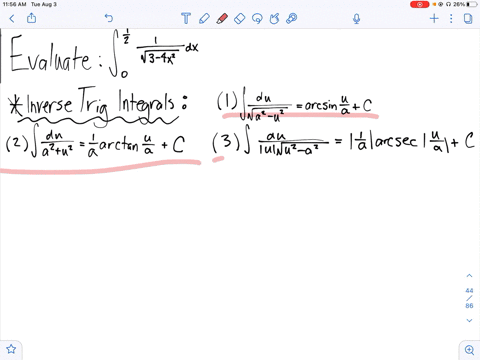 11:56 AM Tue Aug 3
26%
Evaluate: ∫₀^{1/2} 1/√(3-4x²) dx
*Inverse Trig Integrals:
(1) ∫ du/√(a²-u²) = arcsin u/a + C
(2) ∫ du/(a²+u²) = 1/a arctan u/a + C
(3) ∫ du/(|u|√(u²-a²)) = |1/a| arcsec |u/a| + C
44
/
86